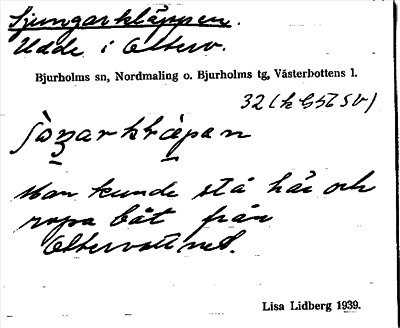 Ljungarkläppen.
Udde i Otterv.
Bjurholms sn, Nordmaling o. Bjurholms tg, Västerbottens l.
32 (k G56 SV)
Man kunde stå här och
ropa båt från
Ottervattnet.
Lisa Lidberg 1939.